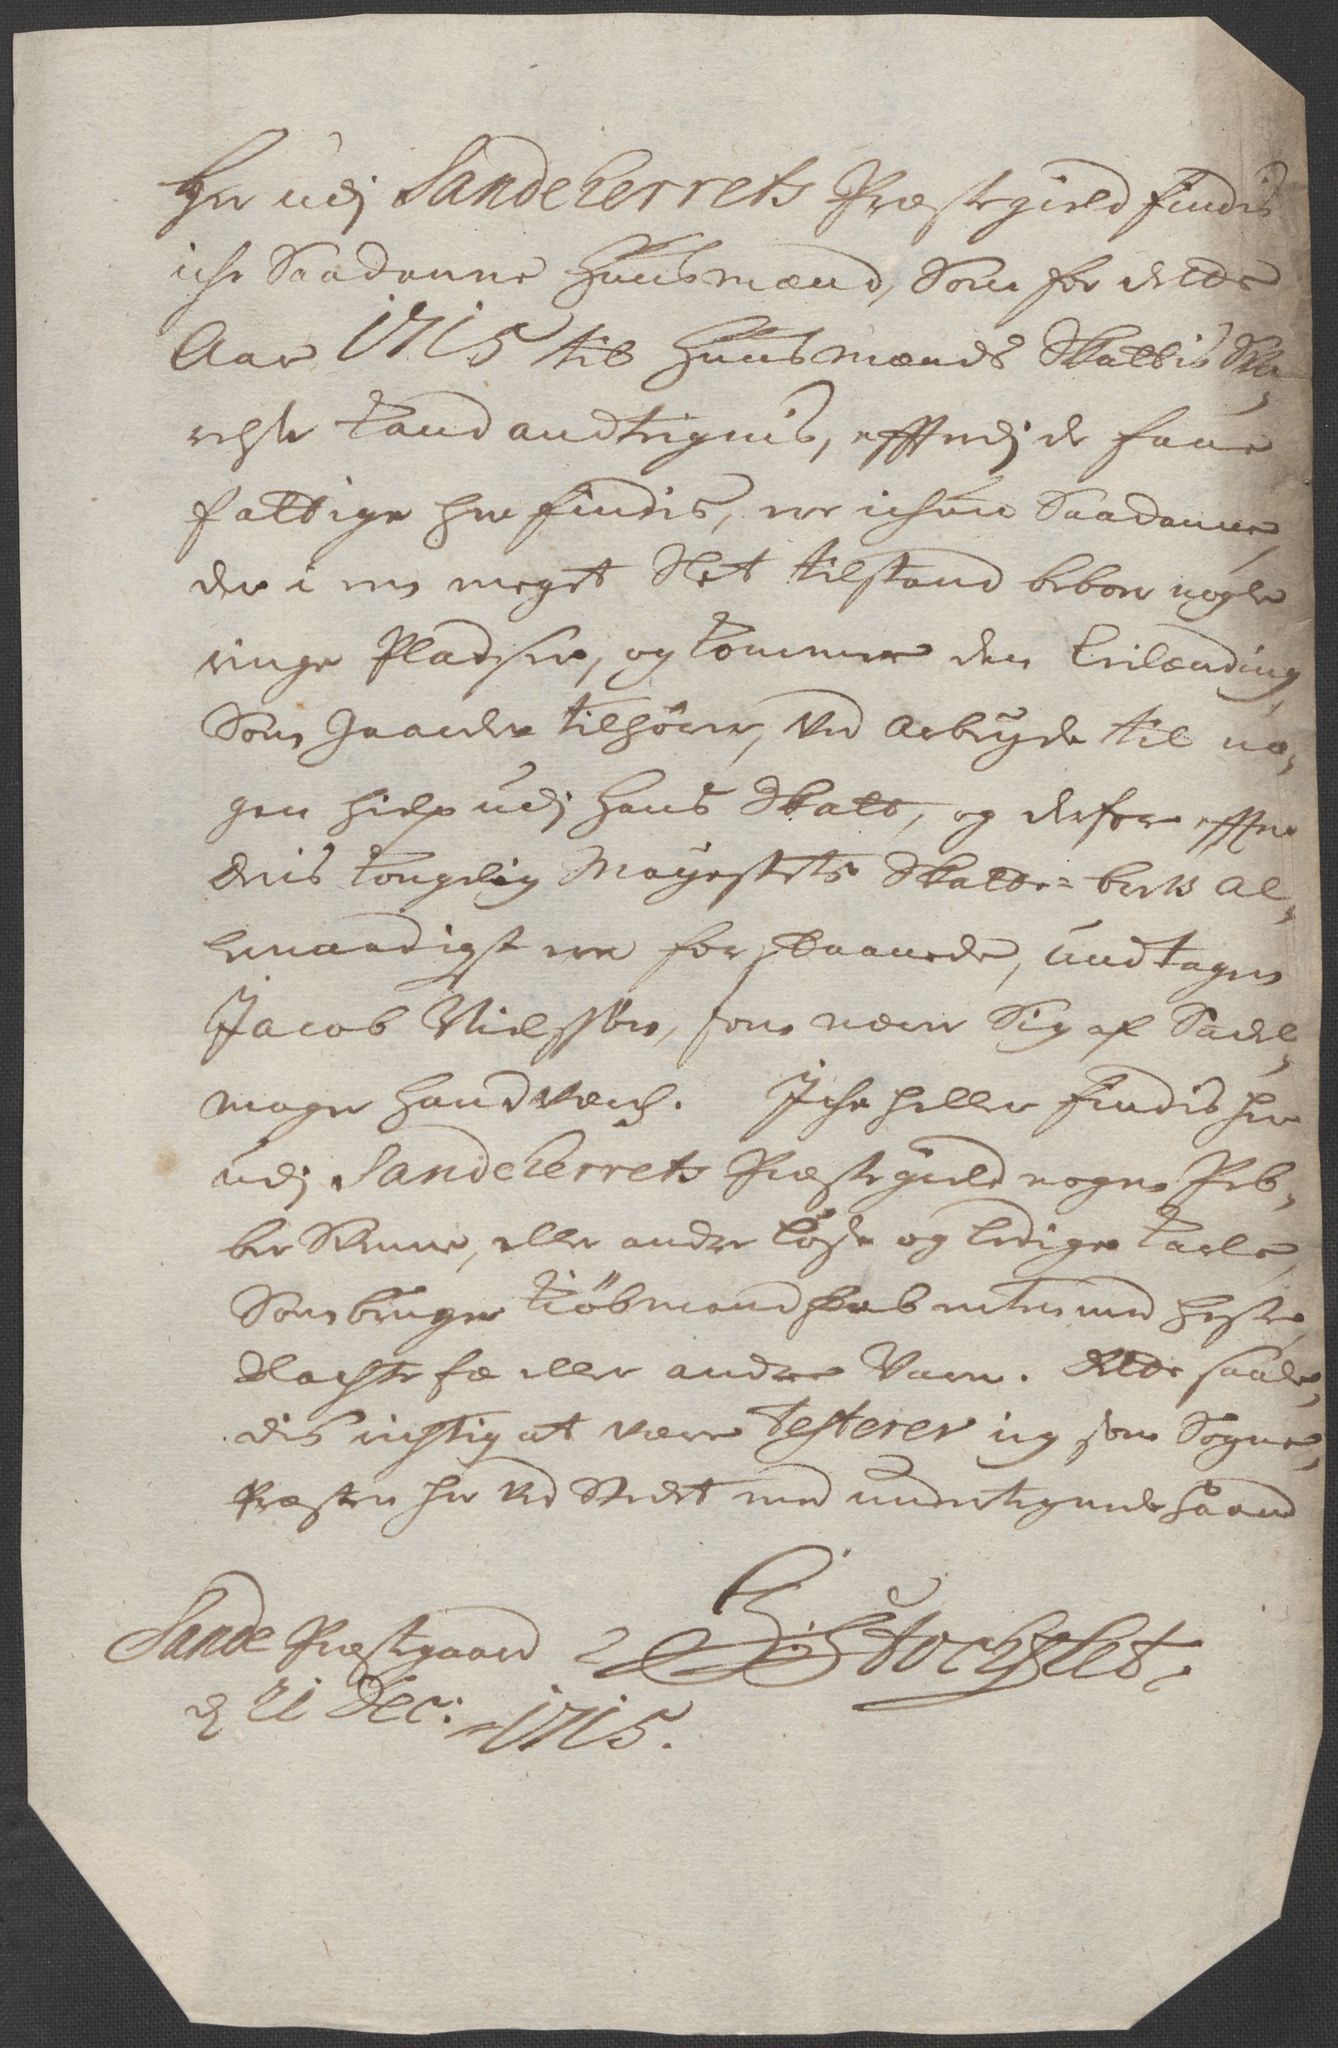 Her udj Sandeherrets Præstegield findis
iche Saadanne Huusmænd, Som for dette
Aar 1715 til Huusmænds Skattis Ske-
relse kand andtegnis, efftterdj de faae
fattige her findis, ere ichun Saadanne,
der i en meget Slet tilstand beboer nogle
ringe Pladser, og kommer den Leilænding,
Som Gaarden tilhörer, ved Arbeyde til no-
gen hielp udj hans Skatt, og derfore effter
deris kongelig Mayestets Skatte-brefs Al-
lernaadigst ere forskaanede, undtagen
Jacob Nielssön, som nærer Sig af Sadel-
mager Handverch. Iche heller findis her
udj Sandeherrets Præstegield nogen Peb-
ber Svenne, eller andre löse og Ledige karle,
Som bruger kiöbmandskab enten med heste,
Slachte fæ eller andre Varer. Dette saale-
dis richtig at være testerer ieg som Sogne-
Præsten her ved Stedet med underteignede Haand
Sande Præstgaard
d 21 Dec: 1715.
Stochflet